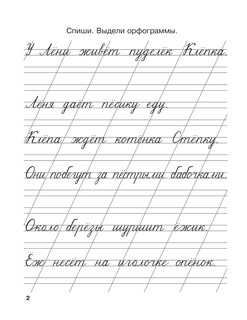 Спиши. Выдели орфограммы.
У Лёни живёт пуделёк Клёпка.
Лёня даёт пёсику еду.
Клёпа ждёт котёнка Стёпку.
Они побегут за пёстрыми бабочками.
Около берёзы шуршит ёжик.
Ёж несёт на иголочке опёнок.
2